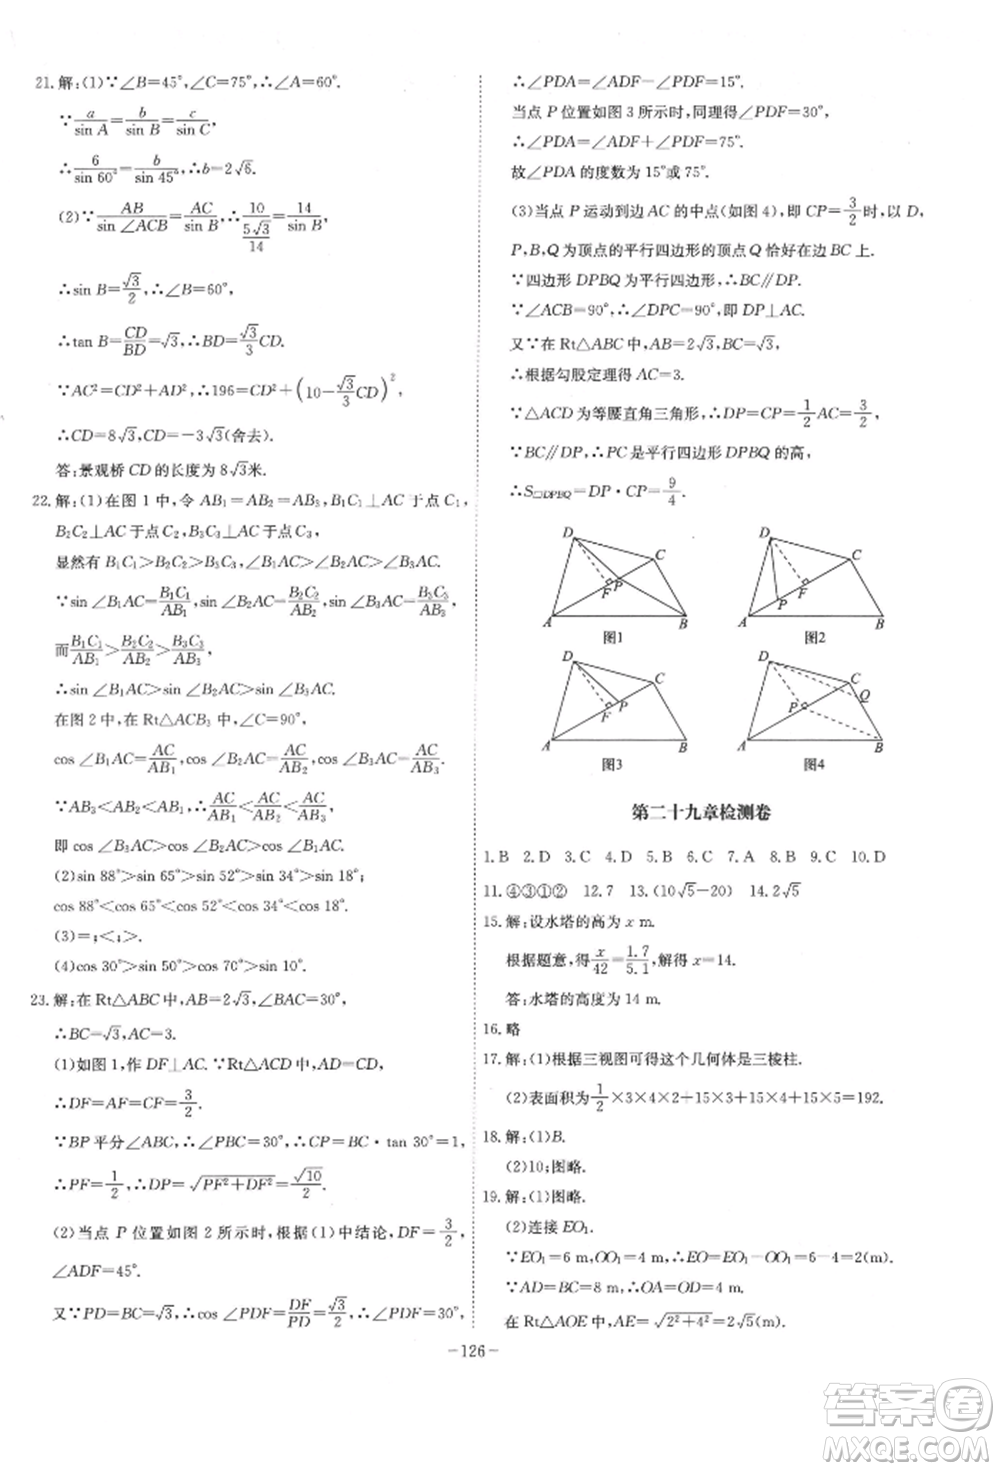 21. 解:(1)∵∠B=45°,∠C=75°,∴∠A=60°.
∵a/sin A=b/sin B=c/sin C,
∴6/sin 60°=b/sin 45°,∴b=2√6.
(2)∵AB/sin∠ACB=AC/sin B,∴10/(5√3/14)=14/sin B,
∴sin B=√3/2,∴∠B=60°,
∴tan B=CD/BD=√3,∴BD=√3/3 CD.
∵AC²=CD²+AD²,∴196=CD²+(10-√3/3 CD)²,
∴CD=8√3,CD=-3√3(舍去).
答:景观桥 CD 的长度为 8√3米.
22. 解:(1)在图 1 中,令 AB₁=AB₂=AB₃,B₁C₁⊥AC 于点 C₁,
B₂C₂⊥AC 于点 C₂,B₃C₃⊥AC 于点 C₃,
显然有 B₁C₁>B₂C₂>B₃C₃,∠B₁AC>∠B₂AC>∠B₃AC.
∵sin ∠B₁AC=B₁C₁/AB₁,sin ∠B₂AC=B₂C₂/AB₂,sin ∠B₃AC=B₃C₃/AB₃,
而B₁C₁/AB₁>B₂C₂/AB₂>B₃C₃/AB₃,
∴sin ∠B₁AC>sin ∠B₂AC>sin ∠B₃AC.
在图 2 中,在 Rt△ACB₃ 中,∠C=90°,
cos ∠B₁AC=AC/AB₁,cos ∠B₂AC=AC/AB₂,cos ∠B₃AC=AC/AB₃.
∵AB₃<AB₂<AB₁,∴AC/AB₁<AC/AB₂<AC/AB₃,
即 cos ∠B₁AC<cos ∠B₂AC<cos ∠B₃AC.
(2)sin 88°>sin 65°>sin 52°>sin 34°>sin 18°;
cos 88°<cos 65°<cos 52°<cos 34°<cos 18°.
(3)=;<;>.
(4)cos 30°>sin 50°>cos 70°>sin 10°.
23. 解:在 Rt△ABC 中,AB=2√3,∠BAC=30°,
∴BC=√3,AC=3.
(1)如图 1,作 DF⊥AC.∵Rt△ACD 中,AD=CD,
∴DF=AF=CF=3/2.
∵BP 平分∠ABC,∴∠PBC=30°,∴CP=BC·tan 30°=1,
∴PF=1/2,∴DP=√(PF²+DF²)=√10/2.
(2)当点 P 位置如图 2 所示时,根据(1)中结论,DF=3/2,
∠ADF=45°.
又∵PD=BC=√3,∴cos ∠PDF=DF/PD=√3/2,∴∠PDF=30°,
∴∠PDA=∠ADF-∠PDF=15°.
当点 P 位置如图 3 所示时,同理得∠PDF=30°,
∴∠PDA=∠ADF+∠PDF=75°.
故∠PDA 的度数为 15°或 75°.
(3)当点 P 运动到边 AC 的中点(如图 4),即 CP=3/2时,以 D,
P,B,Q 为顶点的平行四边形的顶点 Q 恰好在边 BC 上.
∵四边形 DPBQ 为平行四边形,∴BC∥DP.
∵∠ACB=90°,∴∠DPC=90°,即 DP⊥AC.
又∵在 Rt△ABC 中,AB=2√3,BC=√3,
∴根据勾股定理得 AC=3.
∵△ACD 为等腰直角三角形,∴DP=CP=1/2 AC=3/2,
∵BC∥DP,∴PC 是平行四边形 DPBQ 的高,
∴S□DPBQ=DP·CP=9/4.
D C P F A B 图1
D C F P A B 图2
D C F P A B 图3
D C P Q A B 图4
第二十九章检测卷
1. B 2. D 3. C 4. D 5. B 6. C 7. A 8. B 9. C 10. D
11. ④③①② 12. 7 13. (10√5-20) 14. 2√5
15. 解:设水塔的高为 x m.
根据题意,得x/42=1.7/5.1,解得 x=14.
答:水塔的高度为 14 m.
16. 略
17. 解:(1)根据三视图可得这个几何体是三棱柱.
(2)表面积为1/2×3×4×2+15×3+15×4+15×5=192.
18. 解:(1)B.
(2)10;图略.
19. 解:(1)图略.
(2)连接 EO₁.
∵EO₁=6 m,OO₁=4 m,∴EO=EO₁-OO₁=6-4=2(m).
∵AD=BC=8 m,∴OA=OD=4 m.
在 Rt△AOE 中,AE=√(2²+4²)=2√5(m).
-126-
答案卷
MXQE.COM